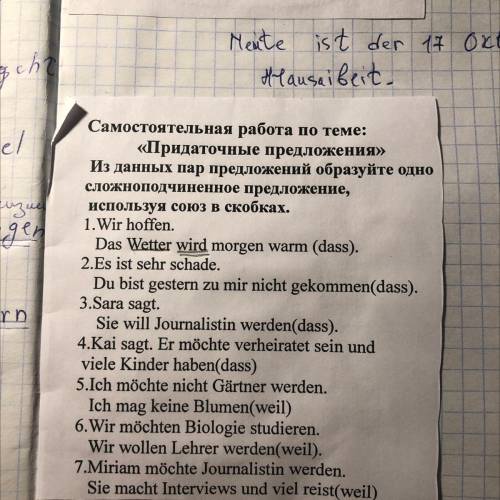 Heute ist der 17
Hausarbeit.
Самостоятельная работа по теме:
«Придаточные предложения»
Из данных пар предложений образуйте одно
сложноподчиненное предложение,
используя союз в скобках.
1.Wir hoffen.
Das Wetter wird morgen warm (dass).
2.Es ist sehr schade.
Du bist gestern zu mir nicht gekommen(dass).
3.Sara sagt.
Sie will Journalistin werden(dass).
4.Kai sagt. Er möchte verheiratet sein und
viele Kinder haben(dass)
5.Ich möchte nicht Gärtner werden.
Ich mag keine Blumen(weil)
6.Wir möchten Biologie studieren.
Wir wollen Lehrer werden(weil).
7.Miriam möchte Journalistin werden.
Sie macht Interviews und viel reist(weil)